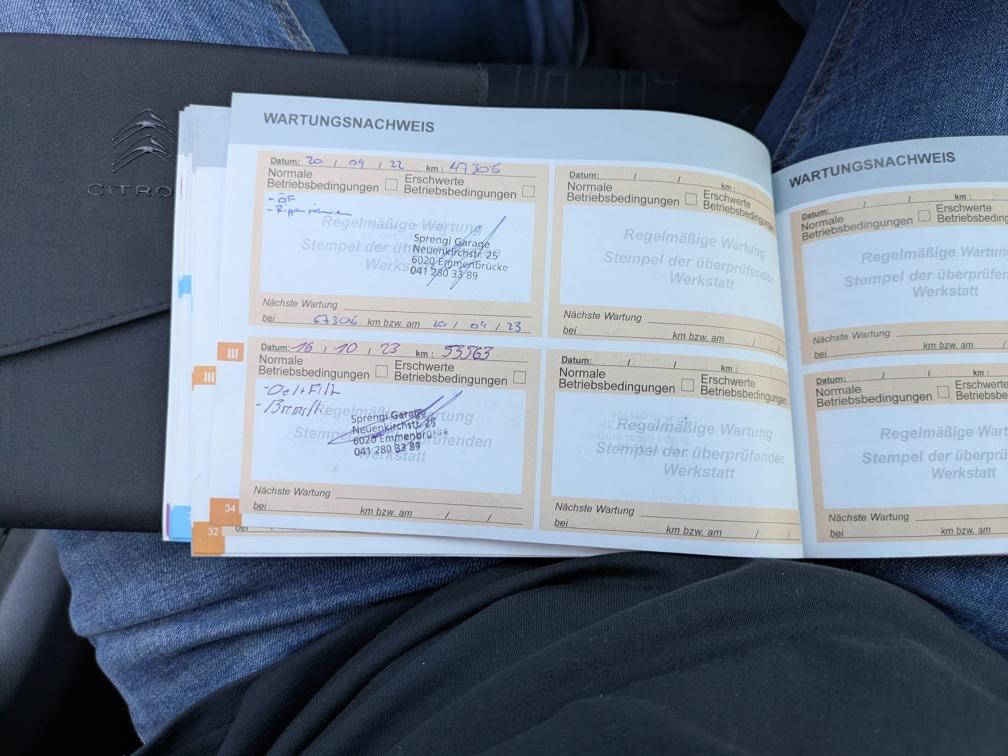 CITRO
WARTUNGSNACHWEIS
Datum: 20 / 04 / 22 km: 47306
Normale Betriebsbedingungen
Erschwerte Betriebsbedingungen
- ÖF
Regelmäßige Wartung
Sprengi Garage
Neuenkirchstr. 25
6020 Emmenbrücke
041 280 33 89
Nächste Wartung
bei 67306 km bzw. am 20 / 04 / 23
III
III
Datum: 16 / 10 / 23 km: 55563
Normale Betriebsbedingungen
Erschwerte Betriebsbedingungen
- Oel + Filt
Sprengi Garage
Neuenkirchstr. 25
6020 Emmenbrücke
041 280 33 89
Nächste Wartung
bei km bzw. am / /
34
32
bei
Datum: / / km:
Normale Betriebsbedingungen
Erschwerte Betriebsbedingungen
Regelmäßige Wartung
Stempel der überprüfenden
Werkstatt
Nächste Wartung
bei km bzw. am / /
Datum: / / km:
Normale Betriebsbedingungen
Erschwerte Betriebsbedingungen
Regelmäßige Wartung
Stempel der überprüfenden
Werkstatt
Nächste Wartung
bei km bzw. am / /
WARTUNGSNACHWEIS
Datum: / / km:
Normale Betriebsbedingungen
Erschwerte
Betriebsbedin
Regelmäßige Wa
Stempel der überprü
Werkstatt
Nächste Wartung
bei km bzw. am /
Datum: / / km:
Normale Betriebsbedingungen
Erschwerte
Betriebsbe
Regelmäßige Wa
Stempel der überprü
Werkstatt
Nächste Wartung
bei km bzw. am